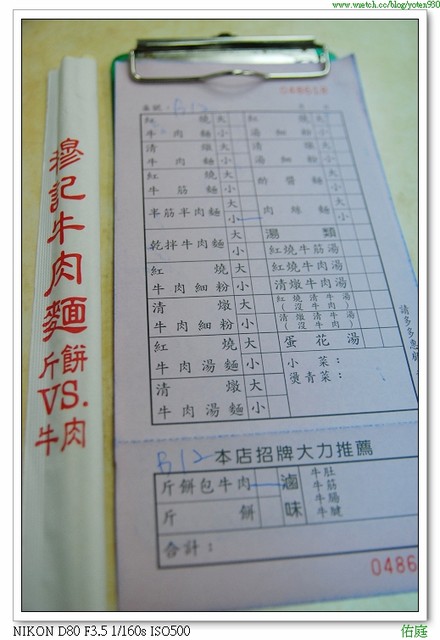 www.wretch.cc/blog/yoten930
穆記牛肉麵
斤餅
VS.
牛肉
048618
B12
紅燒牛肉麵 大 小
清燉牛肉麵 大 小
紅燒牛筋麵 大 小
半筋半肉麵 大 小
乾拌牛肉麵 大 小
紅燒牛肉細粉 大 小
清燉牛肉細粉 大 小
紅燒牛肉湯麵 大 小
清燉牛肉湯麵 大 小
湯細粉
湯細粉
酢醬麵
肉絲麵
湯類
紅燒牛筋湯
紅燒牛肉湯
清燉牛肉湯
紅燒清牛湯(沒牛肉)
清燉清牛湯(沒牛肉)
蛋花湯
小菜:
燙青菜:
請多多惠顧
B12
本店招牌大力推薦
斤餅包牛肉
斤餅
滷味
牛肚
牛筋
牛腸
牛腱
合計:
0486
NIKON D80 F3.5 1/160s ISO500
佑庭